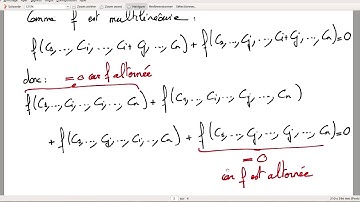 Comme f est multilinéaire :
f(C₁,...,Ci,...,Ci+Cj,...,Cn) + f(C₁,...,Cj,...,Ci+Cj,...,Cn)=0
donc : =0 car f alternée
f(C₁,...,Ci,...,Ci,...,Cn) + f(C₁,...,Ci,...,Cj,...,Cn)
+ f(C₁,...,Cj,...,Ci,...,Cn) + f(C₁,...,Cj,...,Cj,...,Cn)=0
=0
car f est alternée